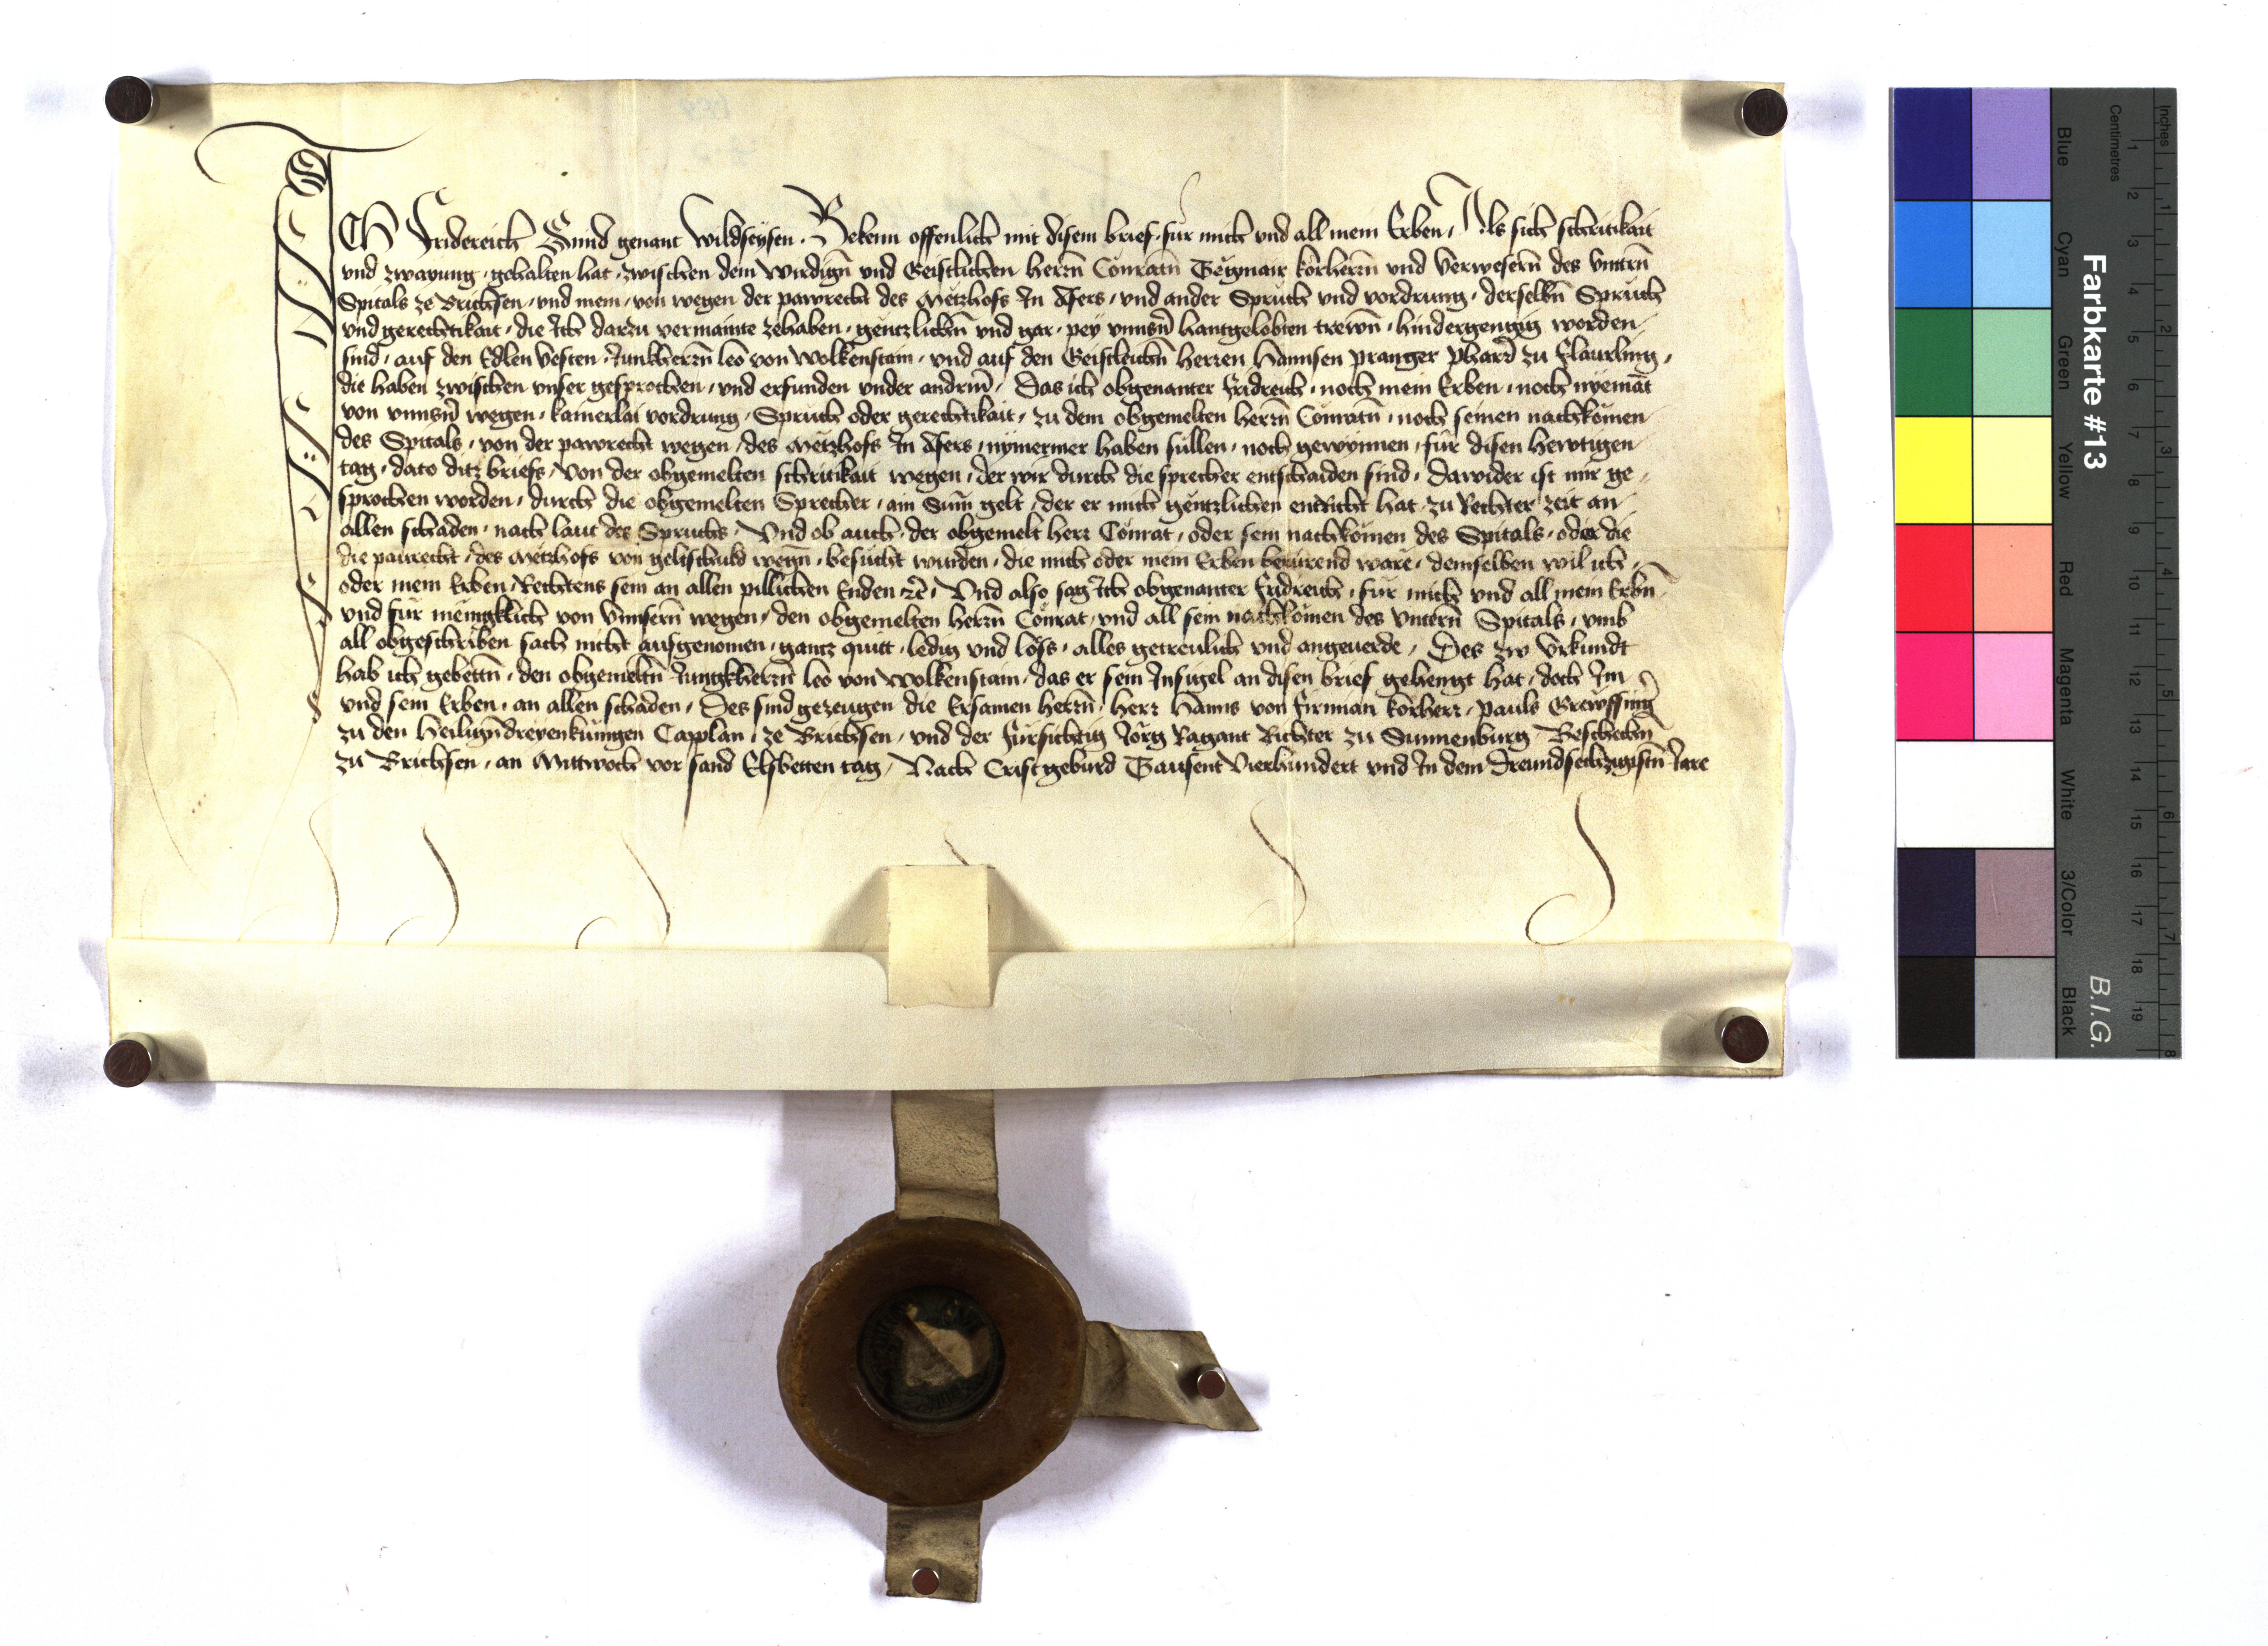 ICH Fridereich Smid genant Wildseysen . Bekenn offenlich mit disem brief . für mich vnd all mein Erben / Als sich schritikait
vnd zwayung . gehalten hat . zwischen dem Wirdign̄ vnd Geistlichen herrn̄ Conratn̄ korherrn̄ vnd Verwesern̄ des vntrn̄
Spitals ze Brichsen / vnd mein / von wegen der pawrecht des Metzhofs In Afers / vnd ander Spruch vnd vordrung . derselbn̄ Spruch
vnd gerechtikait . die Ich darzu vermainte zehaben . gentzlichn̄ vnd gar . pey vnnsn̄ hantgelobten trewn̄ . hindergengig worden
sind . auf den Edlen Vesten . Junkherrn̄ leo von Wolkenstain . vnd auf den Geistleichn̄ herren Hannsen pranger pharr̄ zu flaurling .
die haben zwischen vnser gesprochen / vnd erfunden vnder andrm̄ / Das ich obgenanter fridreich . noch mein Erben . noch nyemāt
von vnnsn̄ wegen . kainerlai vordrung . Spruch oder gerechtikait . zu dem obgemelten herrn̄ Conratn̄ . noch seinen nachkomen
des Spitals . von der pawrecht wegen . des Metzhofs In Afers . nymermer haben sullen . noch gewynnen . für disen hewtigen
tag . dato ditz briefs / von der obgemelten schritikait wegen . der wir durch die sprecher entschaiden sind . dawider ist mir ge-
sprochen worden . durch die obgemelten Sprecher . ain Sum̄ gelt . der er mich gentzlichen entricht hat . zu Rechter zeit an
allen schaden . nach laut des Spruchs . Vnd ob auch . der obgemelt herr Conrat . oder sein nachkomen des Spitals . oder die
die paurecht . des Metzhofs von geltschuld wegn̄ . besucht wurden . die mich oder mein Erben berürend ware . demselben wil ich .
oder mein Erben . Rechtens sein an allen pillichen Enden &c̄ . Vnd also sag Ich obgenanter fridreich . für mich vnd all mein Erbn̄
vnd für meingklich von vnnsern̄ wegen . den obgemelten herrn̄ Conrat . vnd all sein nachkomen des vntern̄ Spitals . vmb
all obgeschriben sach nicht ausgenomen . gantz quitt . ledig vnd loss . alles getreulich vnd angeuerde / Des zw Vrkundt
hab ich gebettn̄ . den obgemeltn̄ Jungkherrn̄ leo von Wolkenstain . das er sein Insigel an disen brief gehengt hat . doch Im
vnd sein Erben . an allen schaden / Des sind gezeugen die Ersamen herrn̄ . herr Hanns von firmian korherr . pauls
zu den Heiligndreyenkunigen Capplan . ze Brichsen / vnd der fürsichtig Jorg Ragant Richter zu Sunnenburg . Beschechn̄
zu Brichsen . an Mittwoch vor sand Elsbetten tag / Nach Crist geburd Tausent Vierhundert vnd In dem Dreundsechzigistn̄ Jare
Farbkarte #13
B.I.G.
Blue Cyan Green Yellow Red Magenta White 3/Color Black
Centimetres 1 2 3 4 5 6 7 8 9 10 11 12 13 14 15 16 17 18 19
Inches 1 2 3 4 5 6 7 8